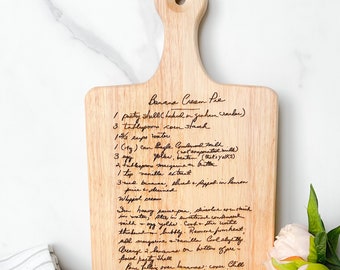 Banana Cream Pie
1 pastry shell (baked or graham cracker)
3 tablespoons corn starch
1 2/3 cups water
1 (14 oz) can Eagle Condensed milk
(not evaporated milk)
3 egg yolks, beaten
2 tablespoons margarine or butter
1 tsp vanilla extract
3 med bananas, sliced & dipped in lemon
juice & drained
Whipped cream
In heavy saucepan, dissolve cornstarch
in water, stir in sweetened condensed
milk & egg yolks. Cook & stir until
thickened & bubbly. Remove from heat
add margarine & vanilla. Cool slightly
Arrange bananas on bottom of
pastry shell
Pour filling over bananas, cover. Chill